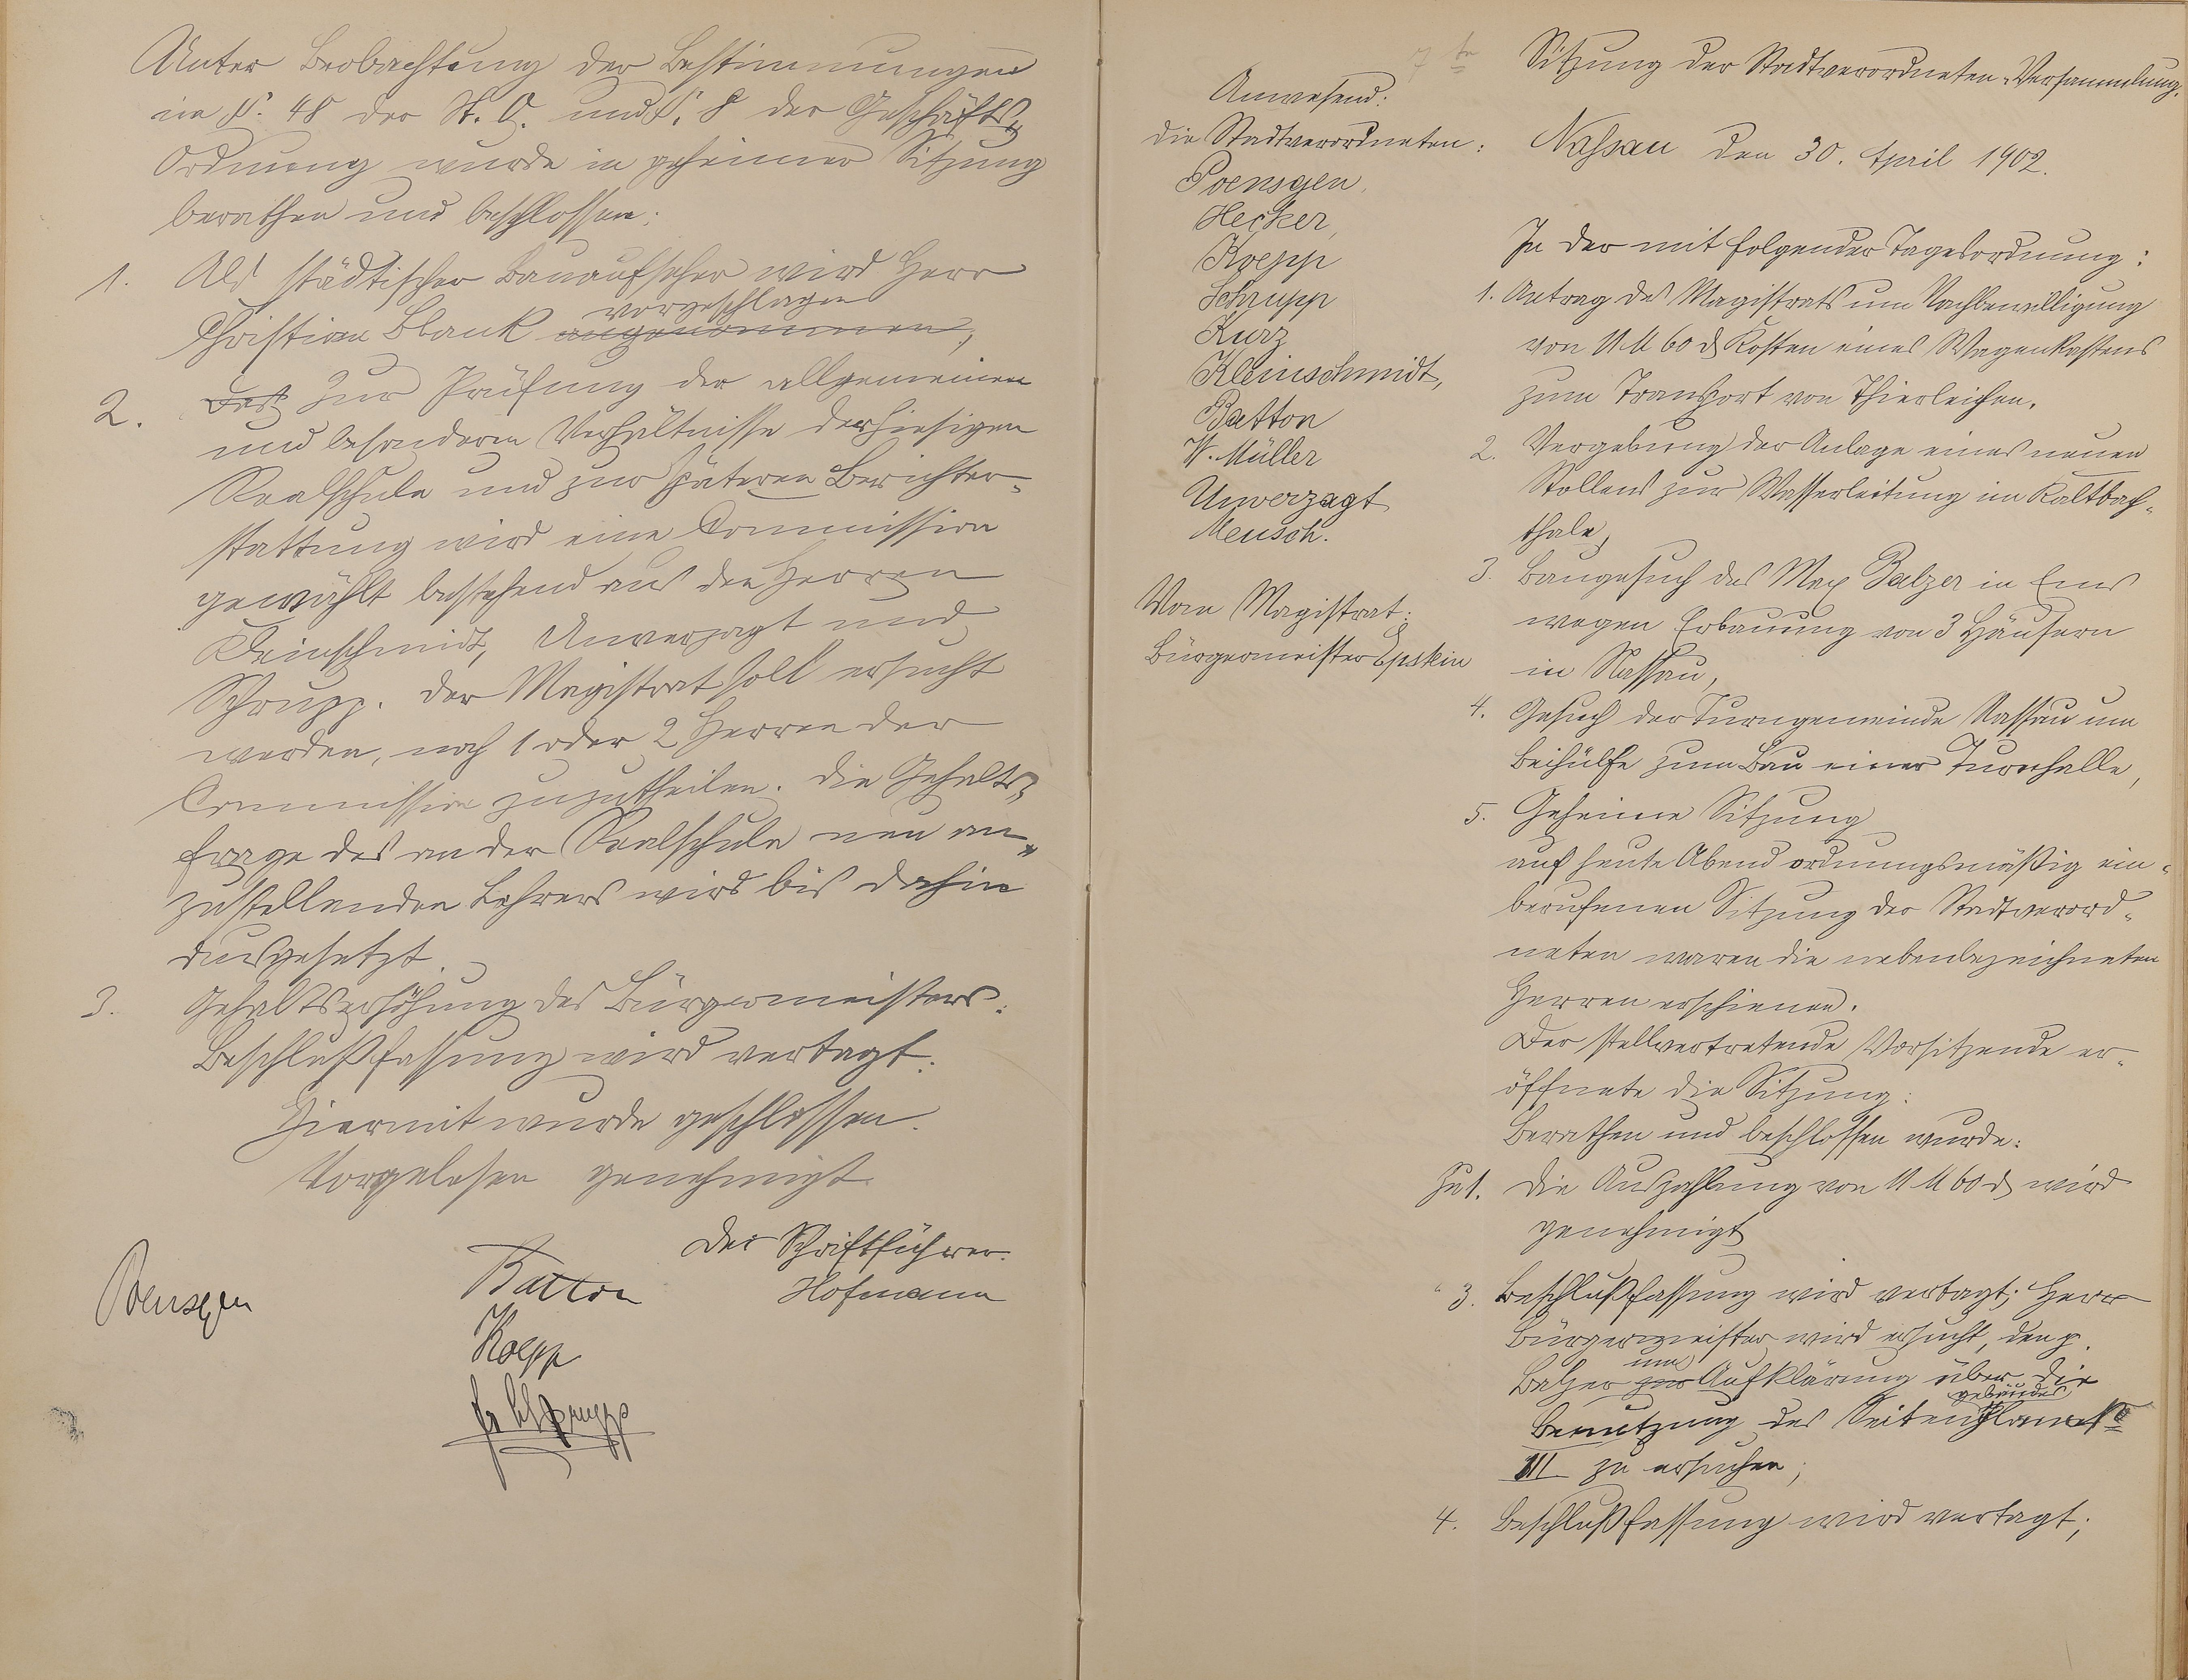 Unter Beobachtung der Bestimmungen
in §. 48 der St. O. und §. 8 der Geschäfts-
Ordnung wurde in geheimer Sitzung
berathen und beschlossen:
1. Als städtischer Bauaufseher wird Herr
vorgeschlagen
Christian Blank angenommen,
2. Zur Prüfung der allgemeinen
und besonderen Verhältnisse der hiesigen
Realschule und zur späteren Berichter-
stattung wird eine Commission
gewählt bestehend aus den Herren
Kleinschmidt, Unverzagt und
Schrupp. Der Magistrat soll ersucht
werden, noch 1 oder 2 Herren der
Commission zuzutheilen. Die Gehalts-
frage des an der Realschule neu an-
zustellenden Lehrers wird bis dahin
ausgesetzt.
3. Gehaltserhöhung des Bürgermeisters:
Beschlußfassung wird vertagt.
Hiermit wurde geschlossen.
Vorgelesen genehmigt.
Der Schriftführer.
Poensgen Batton Hofmann
Koepp
Fr Schrupp
7te Sitzung der Stadtverordneten-Versammlung.
Anwesend:
die Stadtverordneten:
Poensgen,
Hecker,
Koepp
Schrupp
Kurz
Kleinschmidt,
Batton
W. Müller
Unverzagt
Meusch.
Vom Magistrat:
Bürgermeister Epstein
Nassau den 30. April 1902.
In der mit folgender Tagesordnung:
1. Antrag des Magistrats um Nachbewilligung
von 11 M 60 d Kosten eines Wagenkastens
zum Transport von Thierleichen.
2. Vergebung der Anlage eines neuen
Stollens zur Wasserleitung im Kaltbach-
thale,
3. Baugesuch des Max Balzer in Ems
wegen Erbauung von 3 Häusern
in Nassau,
4. Gesuch der Turngemeinde Nassau um
Beihülfe zum Bau einer Turnhalle,
5. Geheime Sitzung
auf heute Abend ordnungsmäßig ein-
berufenen Sitzung der Stadtverord-
neten waren die nebenbezeichneten
Herren erschienen.
Der stellvertretende Vorsitzende er-
öffnete die Sitzung.
Berathen und beschlossen wurde:
Zu 1. Die Auszahlung von 11 M 60 d wird
genehmigt
" 3. Beschlußfassung wird vertagt; Herr
Bürgermeister wird ersucht, den p.
um
Balzer zur Aufklärung über die
gebäudes
Benutzung des Seiten
III zu ersuchen;
4. Beschlußfassung wird vertagt;